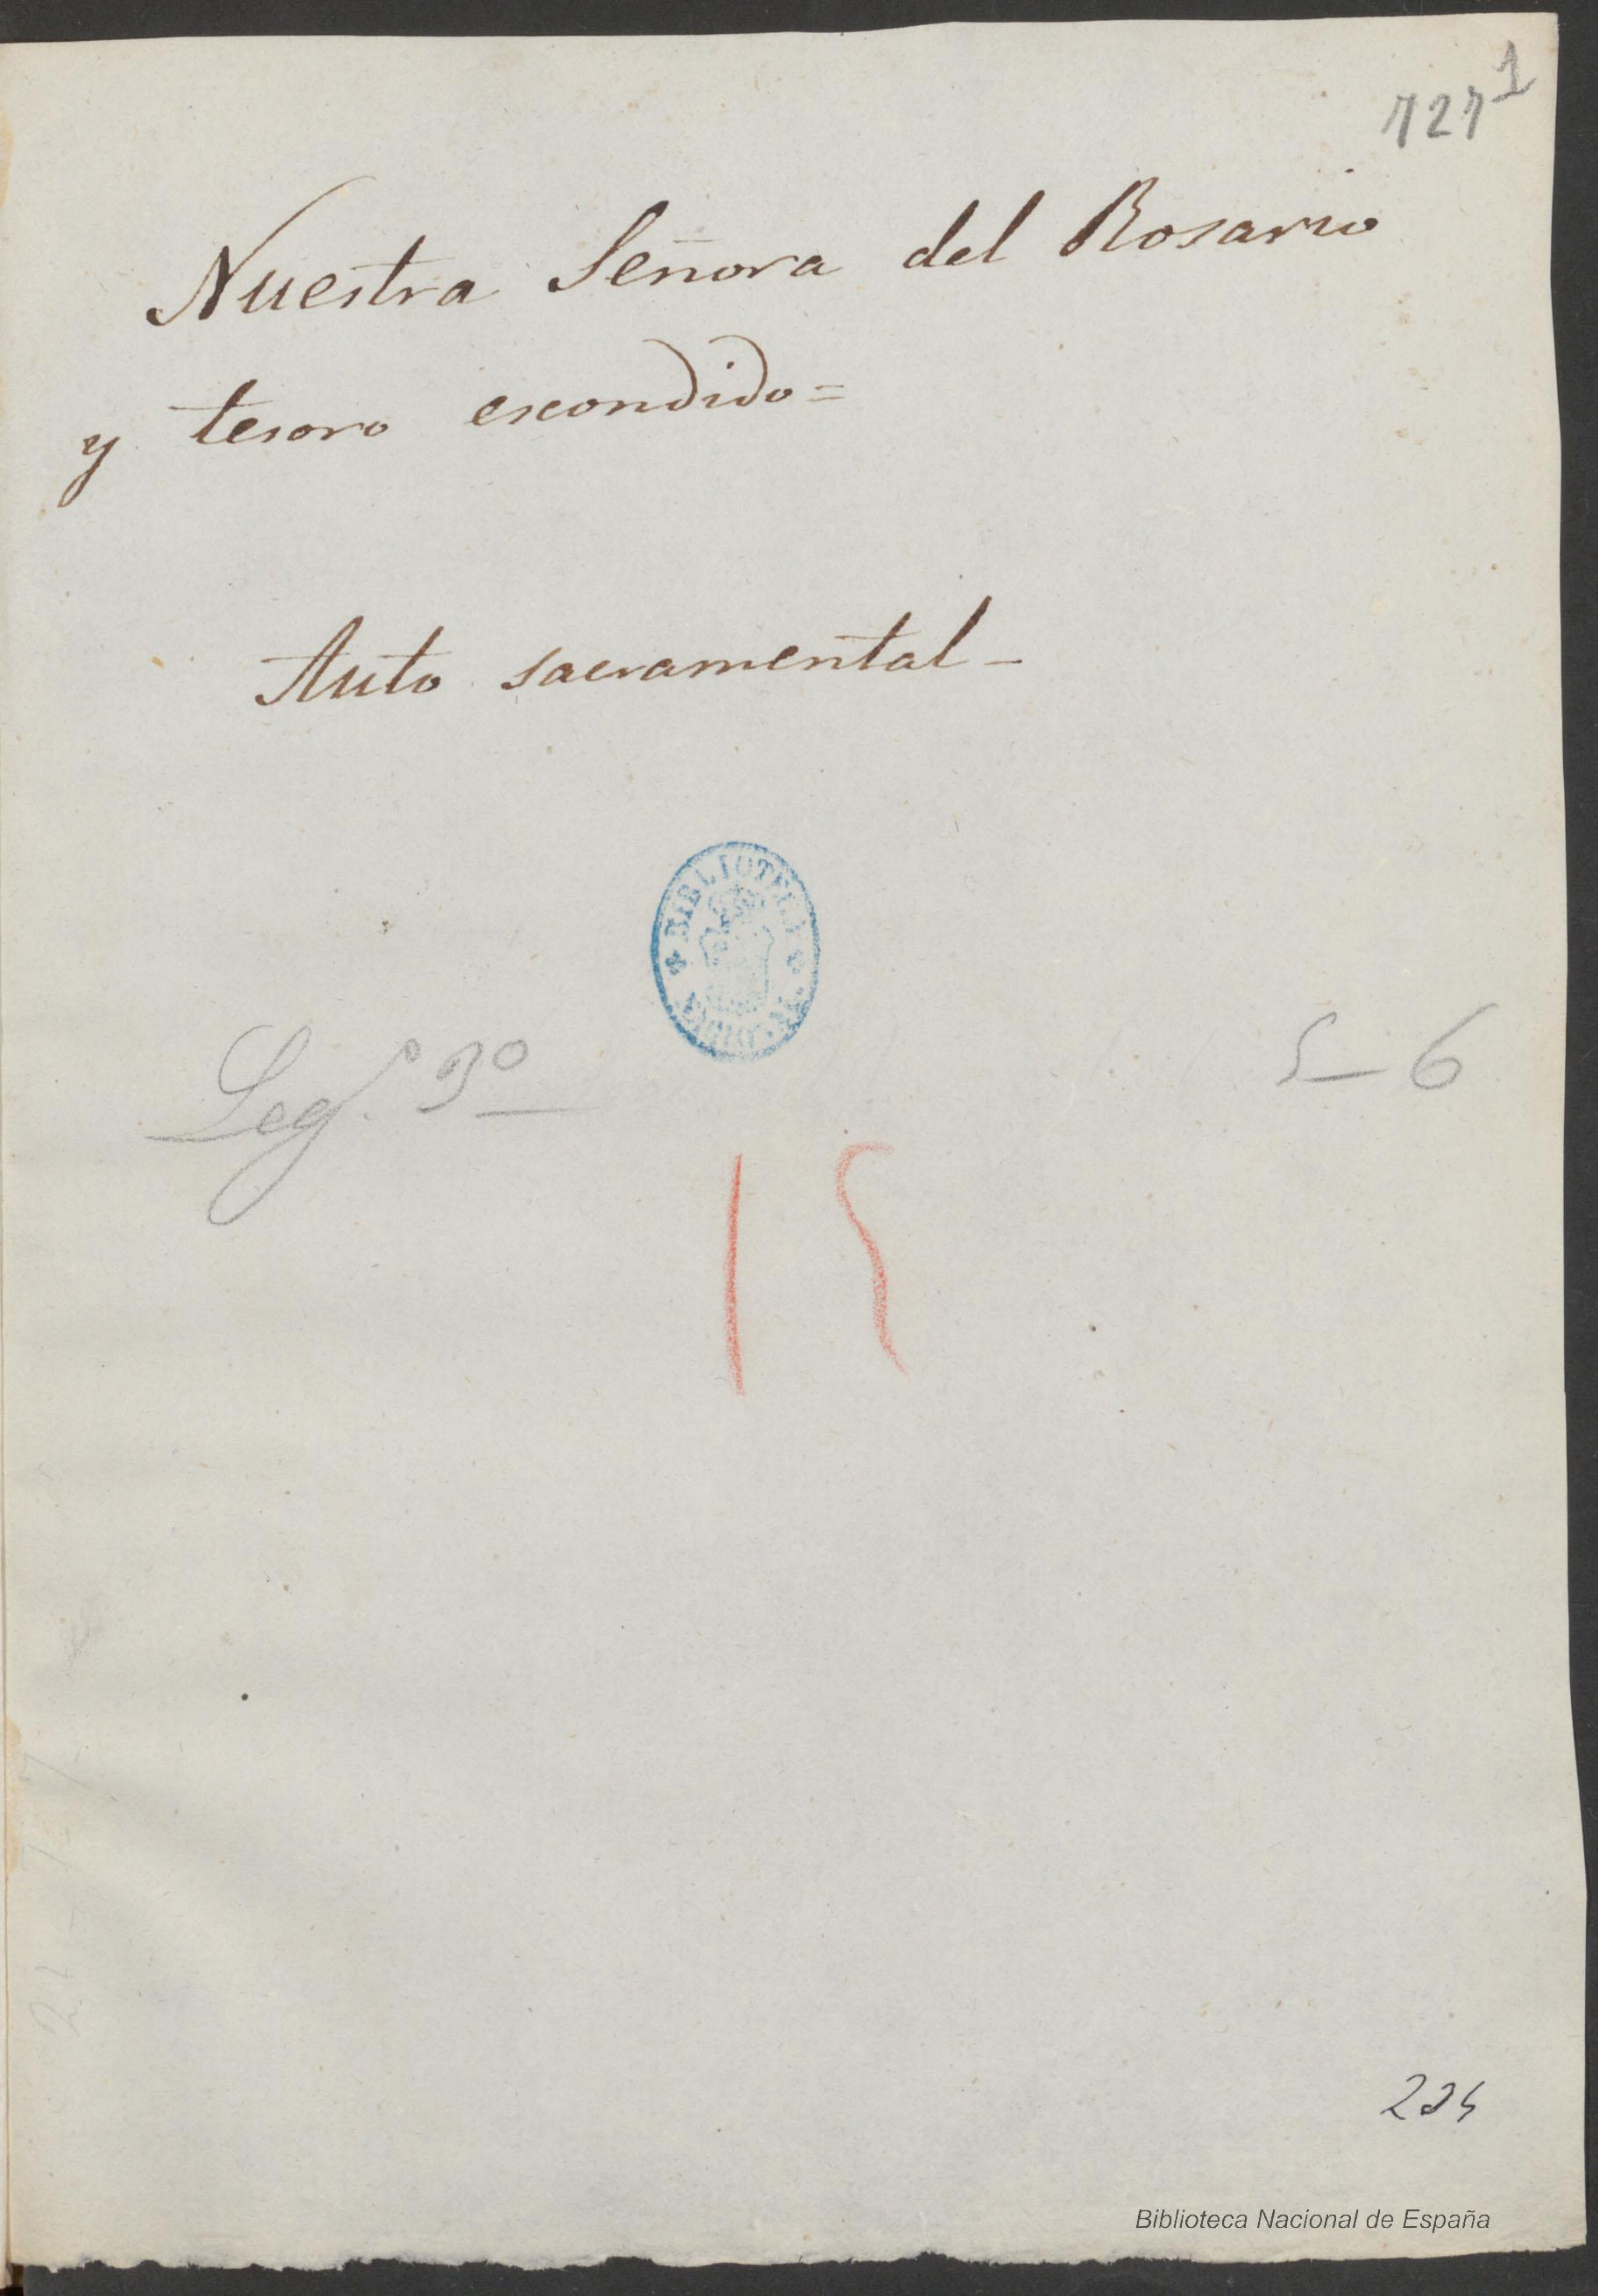 727 1
Nuestra Señora del Rosario
y tesoro escondido=
Auto sacramental-
BIBLIOTECA NACIONAL
Leg.º 3º
5-6
15
Biblioteca Nacional de España